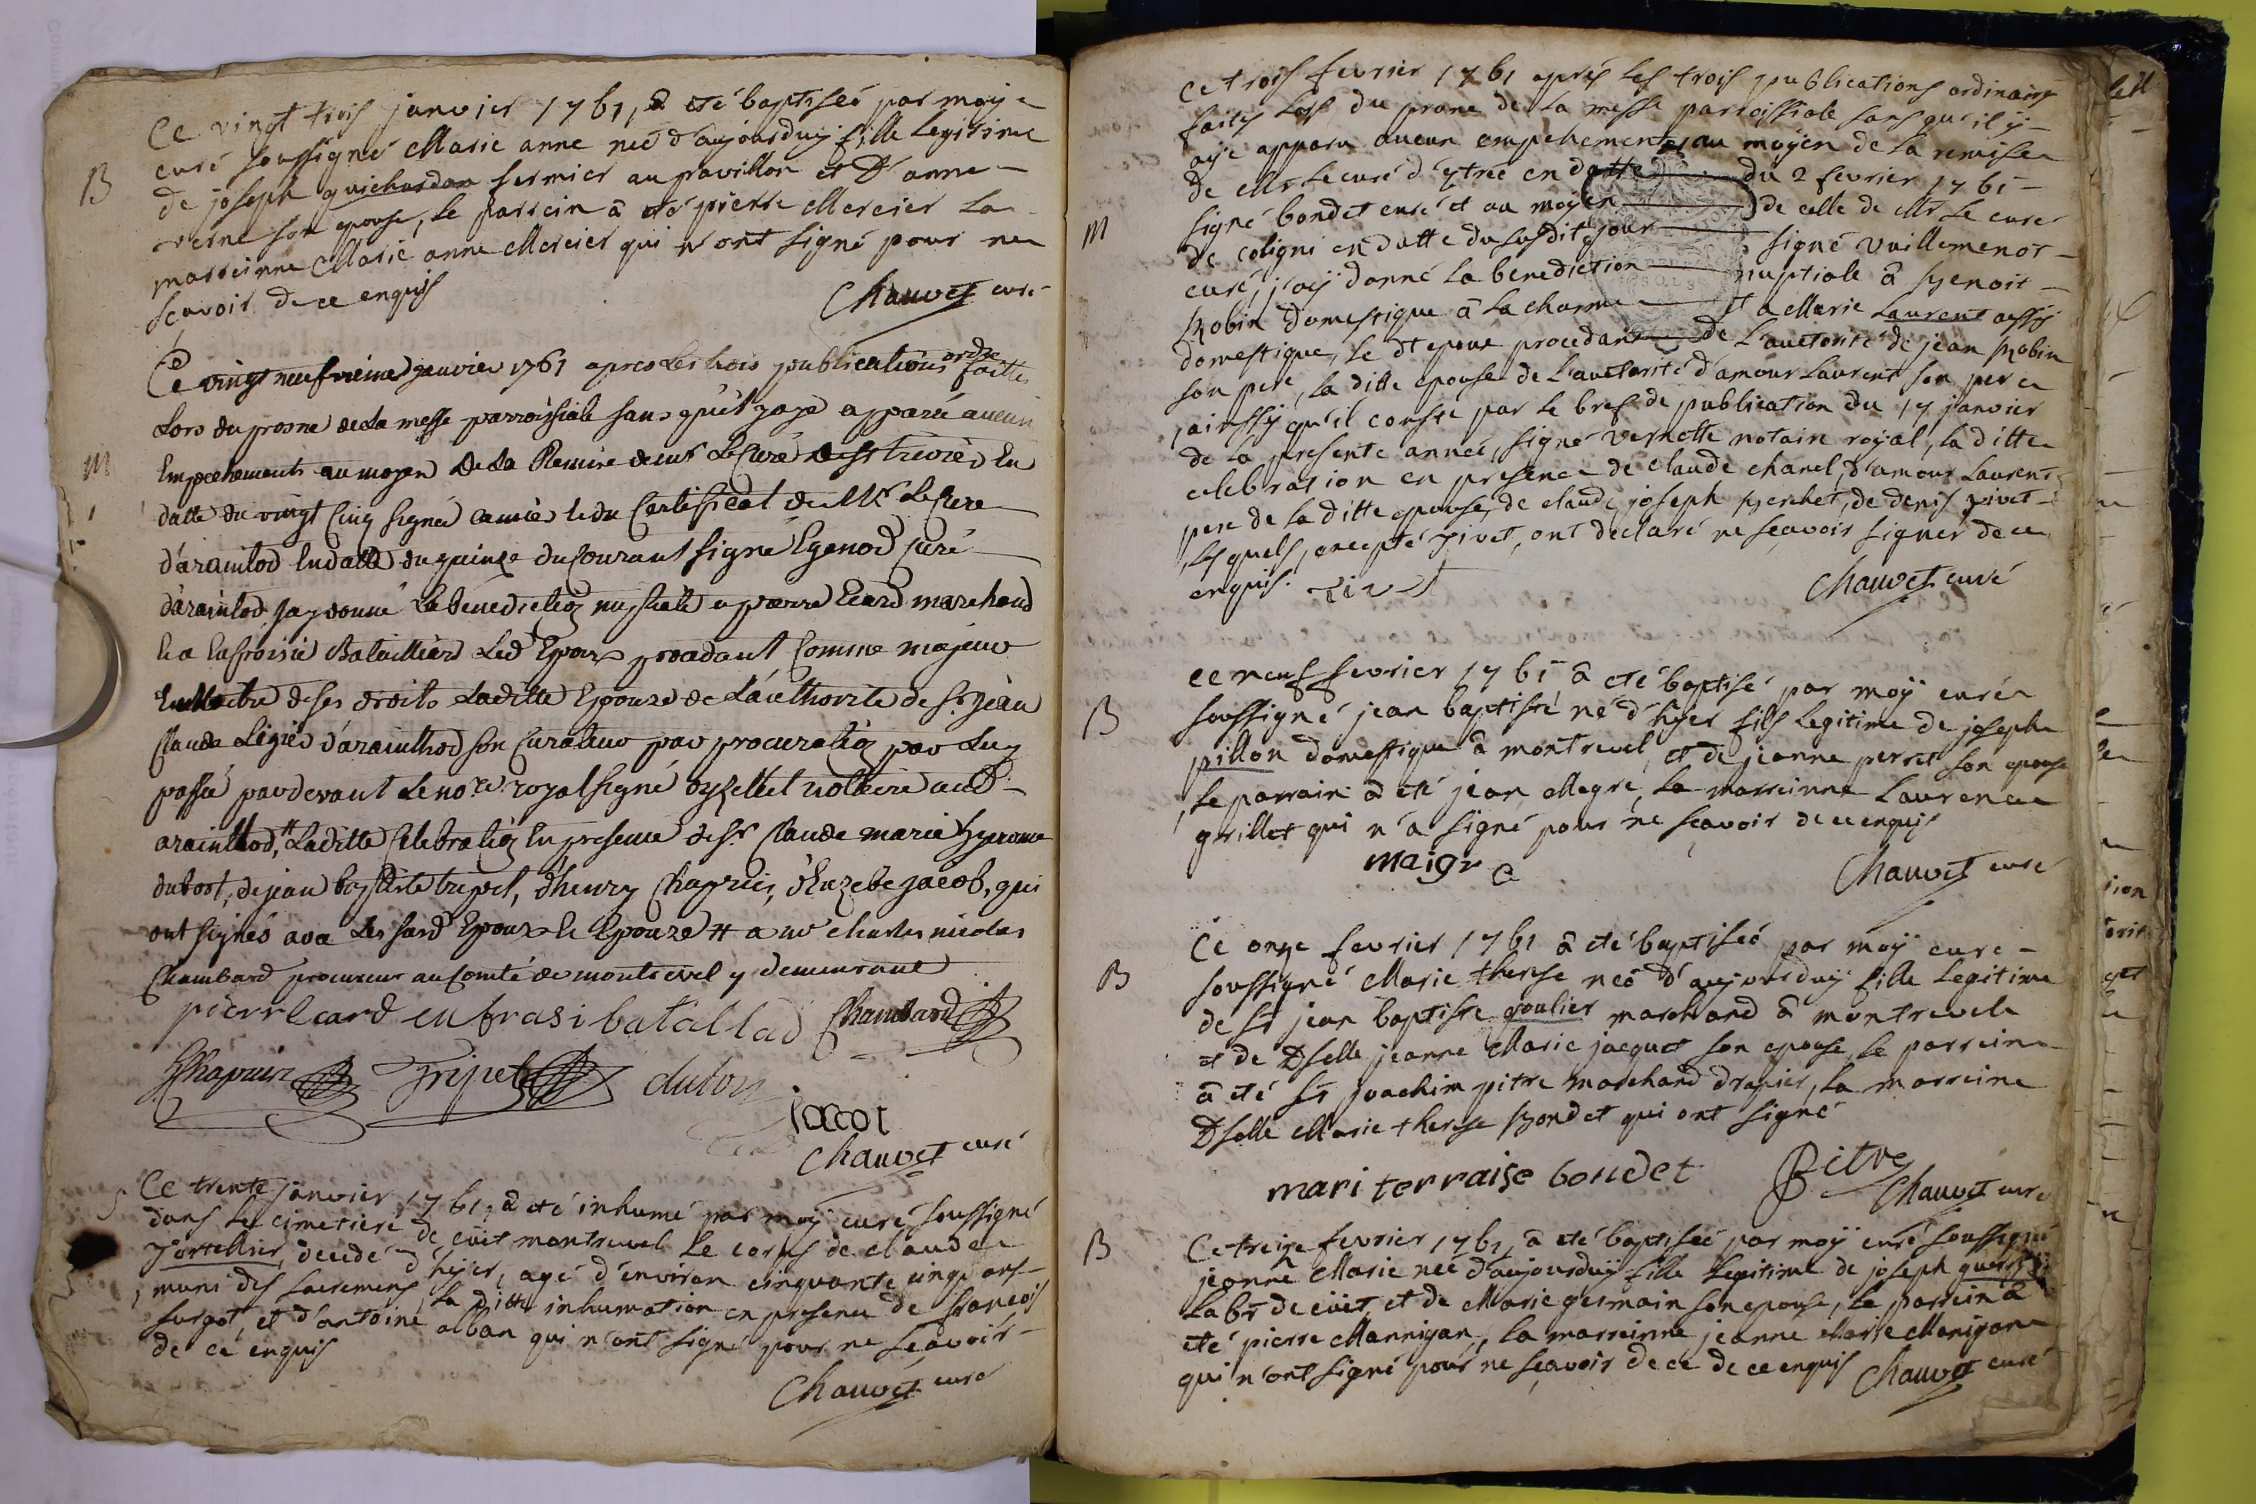 Ce vingt trois janvier 1761, â eté baptiseé par moy
B
curé soussigné Marie anne neé d'aujourduy fille Legitime
de joseph guichardon fermier au pavillon et D'anne
verne son epouse, Le parrein â eté pierre Mercier La
marreinne Marie anne Mercier qui n'ont signé pour ne
sçavoir de ce enquis
Chauvet curé
Ce vingt neufvieme janvier 1761 apres Les trois publications ordre faittes
Lors du prosne de La messe parroissiale sans qu'il y aye apparu aucun
M
Empechements au moyen de La Remise de mr Le Curé de st trivier En
datte du vingt Cinq signé et du Certificat de Mr Le Cure
d'arainthod En datte du quinze du Courant signé Egenod Curé
d'arainthod, jay donné La benediction nuptiale a pierre Ecard marchand
Et a Enfroisie Bataillard Led Epoux procedant Comme majeur
Et Maitre de ses droits Laditte Epouze de L'authorité de Sr jean
Claude Legier d'arainthod son Curateur par procuration par Luy
passée pardevant Le nore royal signé notaire aud
arainthod, Laditte Celebration En presence de Sr Claude marie hyerome
dubost, de jean baptiste tripet, d'henry Chapuis, d'Euzebe jacob, qui
ont signés avec Les sard Epoux Et Epouze # a mr charles nicolas
Chambard procureur au Comté de montrevel y demeurant
pierre Ecard enfrasi batallad Chambard
Chapuis Tripet dubost
jacot
Chauvet curé
S
Ce trente janvier 1761, â eté inhumé par moy curé soussigné
dans Le cimetiere de cuet montrevel Le corps de claude
decedé d'hyer, agé d'environ cinquante cinq ans
muni des sacremens, La ditte inhumation en presence de françois
surgot, et d'antoine alban qui n'ont signé pour ne sçavoir
de ce enquis
Chauvet curé
Ce trois fevrier 1761 aprés Les trois publications ordinaires
faites Lors du prone de La messe parroissiale sans qu'il y
aye apparu aucun empechement, au moyen de La remise
de Mr Le curé d'ytrie en datte du 2 fevrier 1761
M
signé bondet curé et au moyen de celle de Mr Le curé
de coligni en datte du susdit jour signé Vuillemenot
curé, j'ay donné La benediction nuptiale â benoit
Robin domestique â La charme et a Marie Laurent aussy
domestique, Le dt epoux procedant de L'autorité de jean Robin
son pere, La ditte epouse de L'autorité d'amour Laurent son pere
ainssy qu'il conste par Le bref de publication du 17 janvier
de La presente année, signé vernette notair royal, La ditte
celebration en presence de claude chanel, d'amour Laurent
pere de La ditte epouse, de claude joseph berchet, de denis pivet
Lesquels, excepté pivet, ont declaré ne sçavoir signer de ce
enquis. pivet
Chauvet curé
ce neuf fevrier 1761 â eté baptisé par moy curé
B
soussigné jean baptiste né d'hyer fils Legitime de joseph
pillon domestique â montrevel, et de jeanne perret son epouse
Le parrain â eté jean Megre, La marreinne Laurence
grillet qui n'a signé pour ne sçavoir de ce enquis
maigre
Chauvet curé
Ce onze fevrier 1761 â eté baptiseé par moy curé
B
soussigné Marie therese neé d'aujourduy fille Legitime
de Sr jean baptiste goulier marchand â montrevel
et de Dselle jeanne Marie jacquet son epouse Le parrein
â eté Sr joachim pitre marchand drapier, La marreine
Dselle Marie therese Bondet qui ont signé
mari terraise bondet Pitre
Chauvet curé
B
Ce treize fevrier 1761, â eté baptiseé par moy curé soussigné
jeanne Marie neé d'aujourduy fille Legitime de joseph
Labr de cuet, et de Marie germain son epouse, Le parrein â
eté pierre Mannigan, La marreinne jeanne Marie Manigan
qui n'ont signé pour ne sçavoir de ce de ce enquis Chauvet curé